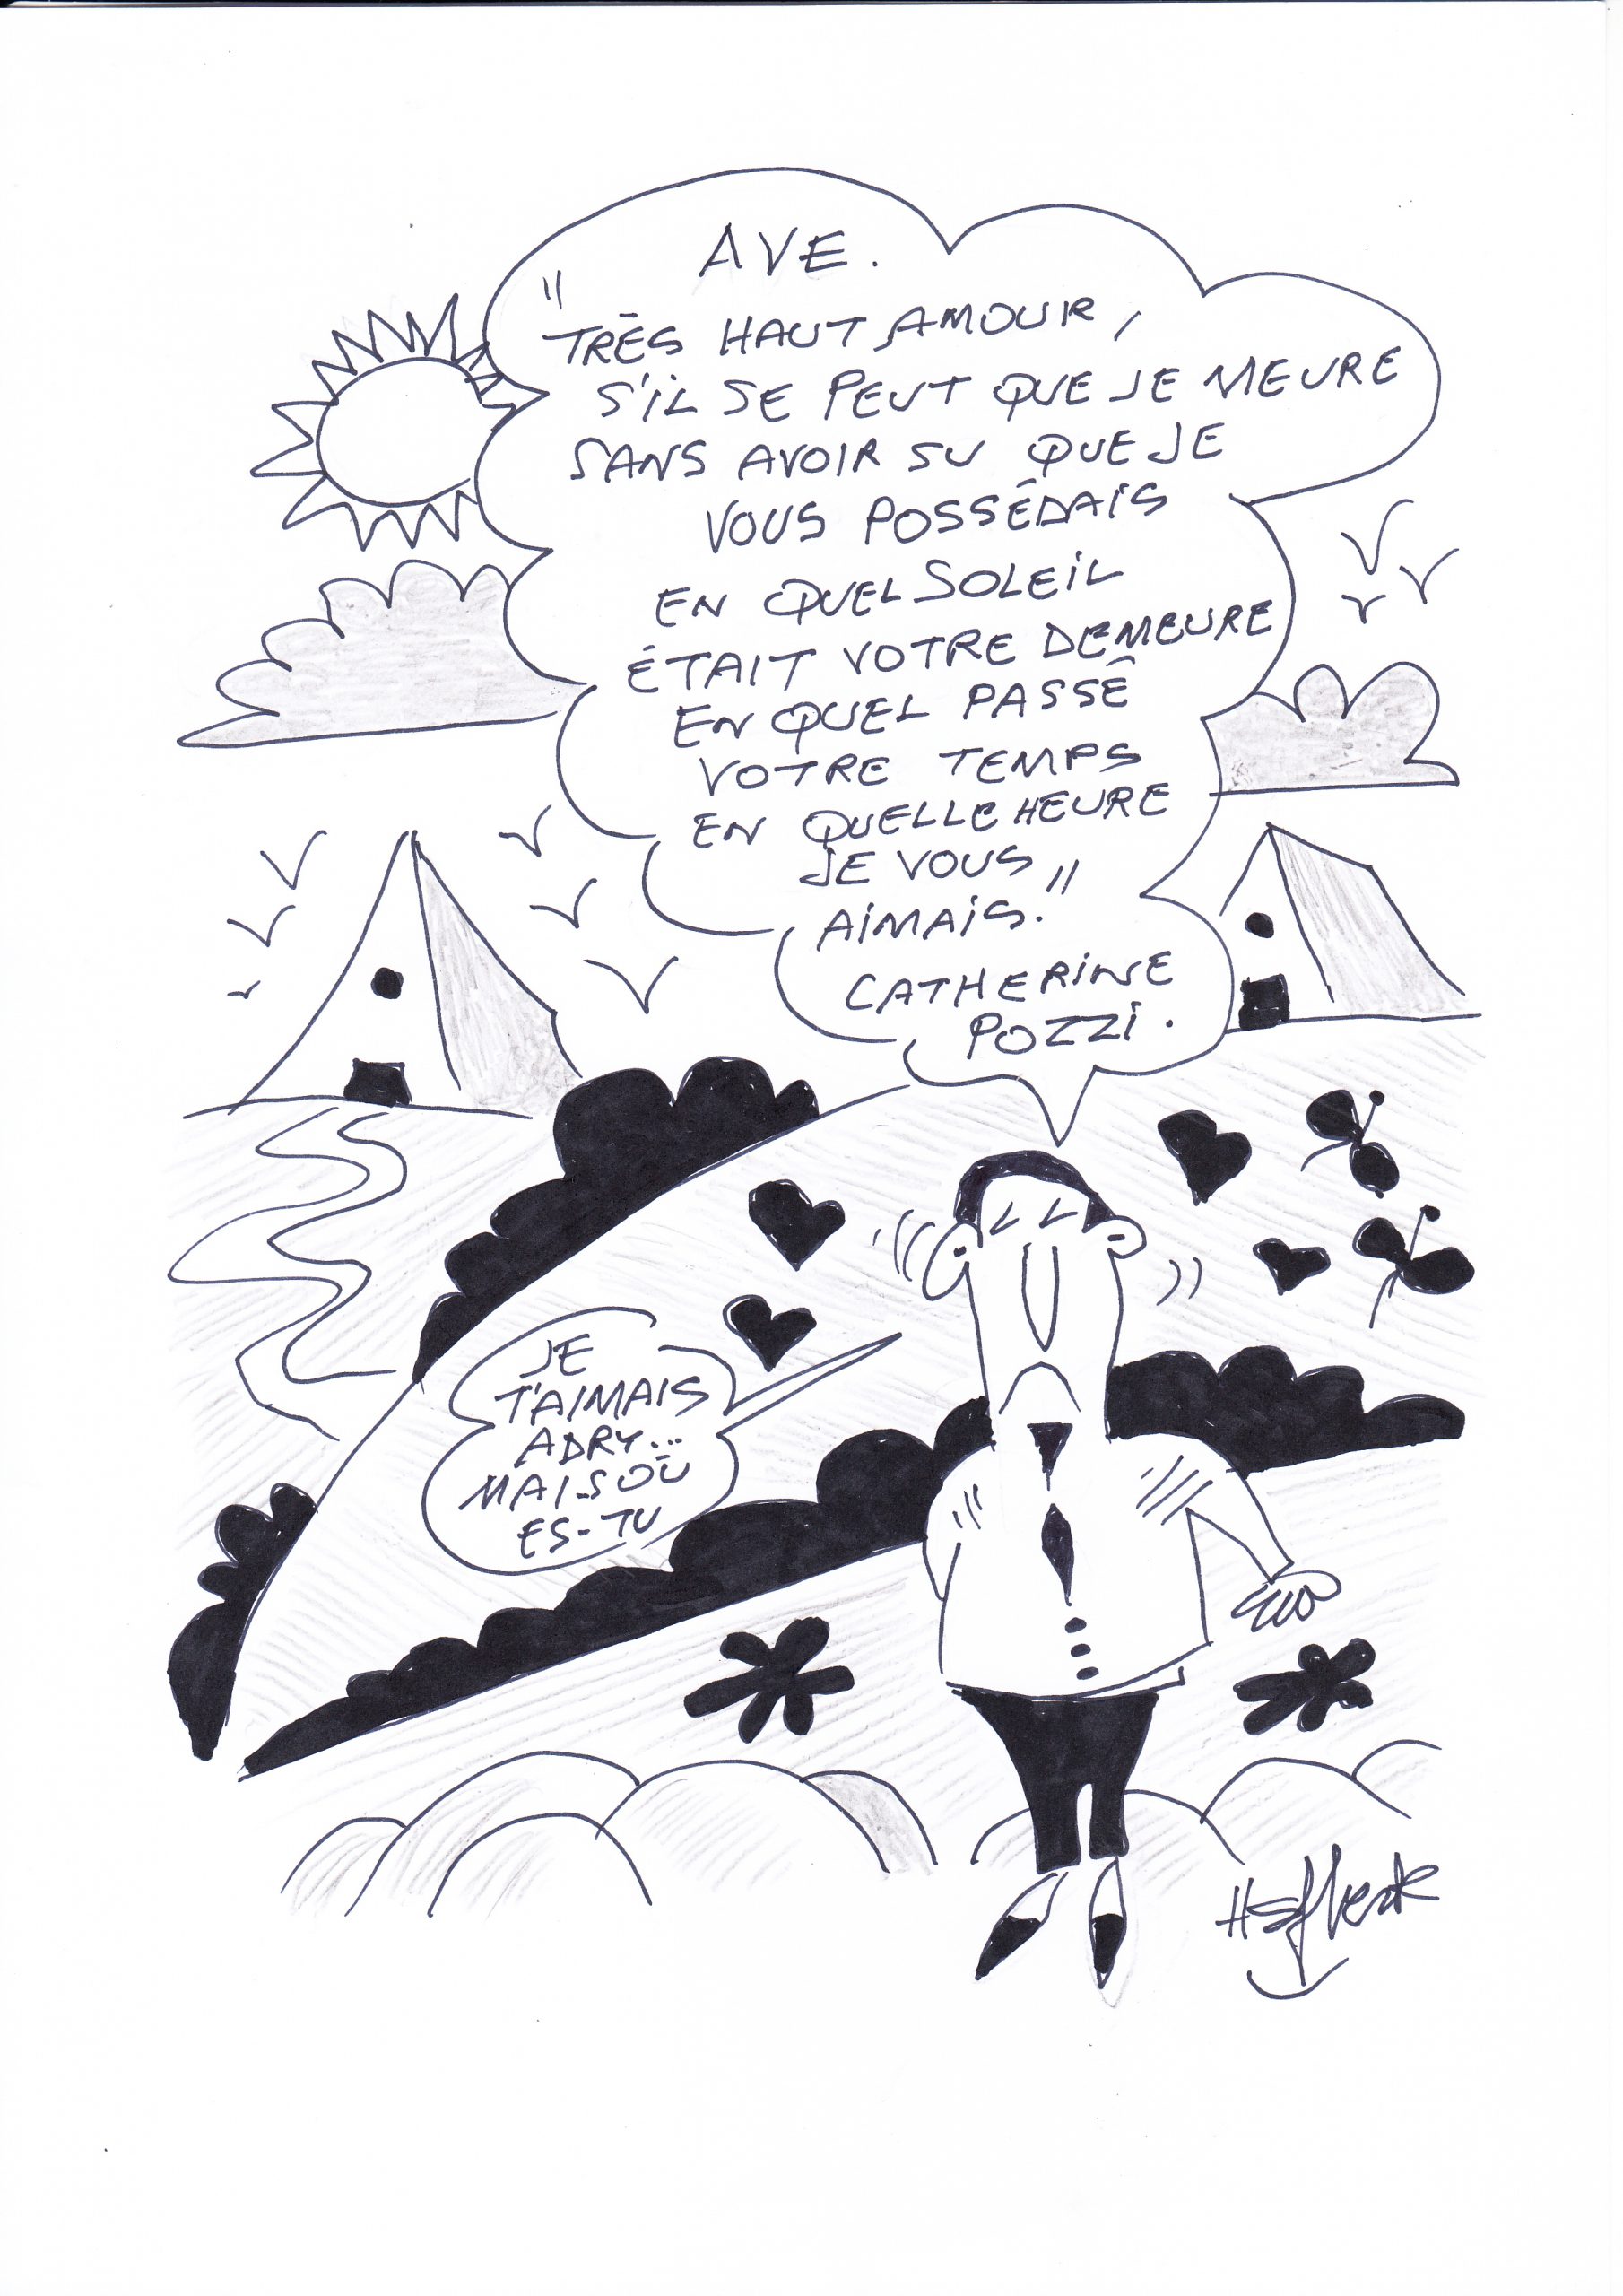 AVE.
"TRÈS HAUT AMOUR,
S'IL SE PEUT QUE JE MEURE
SANS AVOIR SU QUE JE
VOUS POSSÉDAIS
EN QUEL SOLEIL
ÉTAIT VOTRE DEMEURE
EN QUEL PASSÉ
VOTRE TEMPS
EN QUELLE HEURE
JE VOUS
AIMAIS."
CATHERINE
POZZI.
JE
T'AIMAIS
ADRY...
MAIS OÙ
ES-TU